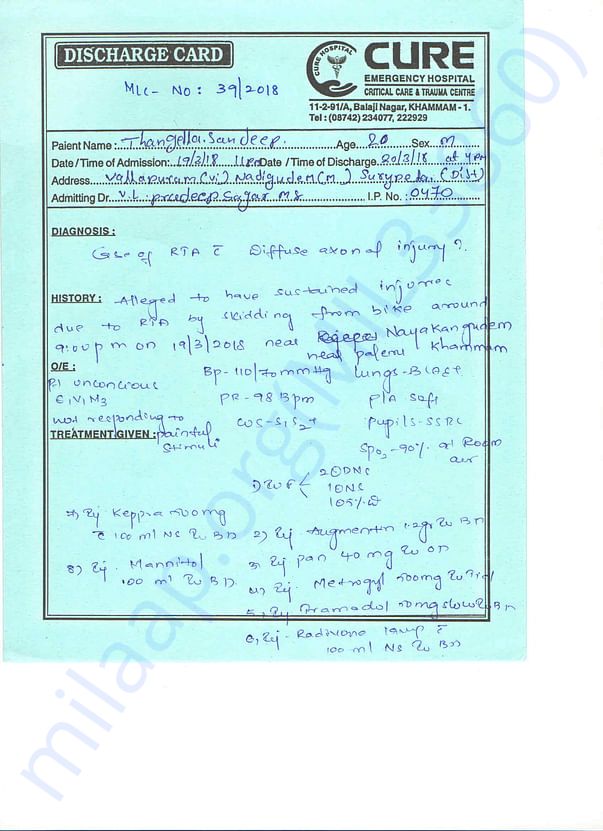 DISCHARGE CARD
MLC- NO: 39/2018
CURE HOSPITAL
CURE
EMERGENCY HOSPITAL
CRITICAL CARE & TRAUMA CENTRE
11-2-91/A, Balaji Nagar, KHAMMAM - 1.
Tel : (08742) 234077, 222929
Paient Name : Thangella. Sandeep. Age 20 Sex M
Date/Time of Admission: 19/3/18 11PM Date / Time of Discharge. 20/3/18 at 4PM
Address Vallapuram (Vi) Nadigudem (M) Suryapeta (Dist)
Admitting Dr. V.L. pradeep Sagar M.S. I.P. No. : 0470
DIAGNOSIS :
Case of RTA c̄ Diffuse axonal injury?
HISTORY : Alleged to have sustained injuries
due to RTA by skidding from bike around
9:00 pm on 19/3/2018 near Nayakangudem
near paleru Khammam
O/E :
Pt unconcious Bp- 110/70mmHg Lungs- BLAE+
E1V1M3 PR- 98 Bpm P/A soft
not responding to CVS- S1S2+ Pupils- SSRL
TREATMENT GIVEN : painful
stimuli
SpO2- 90% at Room
air
2 DNS
IVF 1 NS
1 5% D
7) Inj Keppra
c̄ 100 ml NS IV BD 2) Inj Augmentin 1.2gr IV BD
8) Inj. Mannitol 3) Inj pan 40 mg IV OD
100 ml IV BD. 4) Inj. Metrogyl 500mg IV TID
5) Inj Tramadol 50mg slow IV BD
6) Inj- 1amp c̄
100 ml NS IV BD
milaap.org(MIL33360)